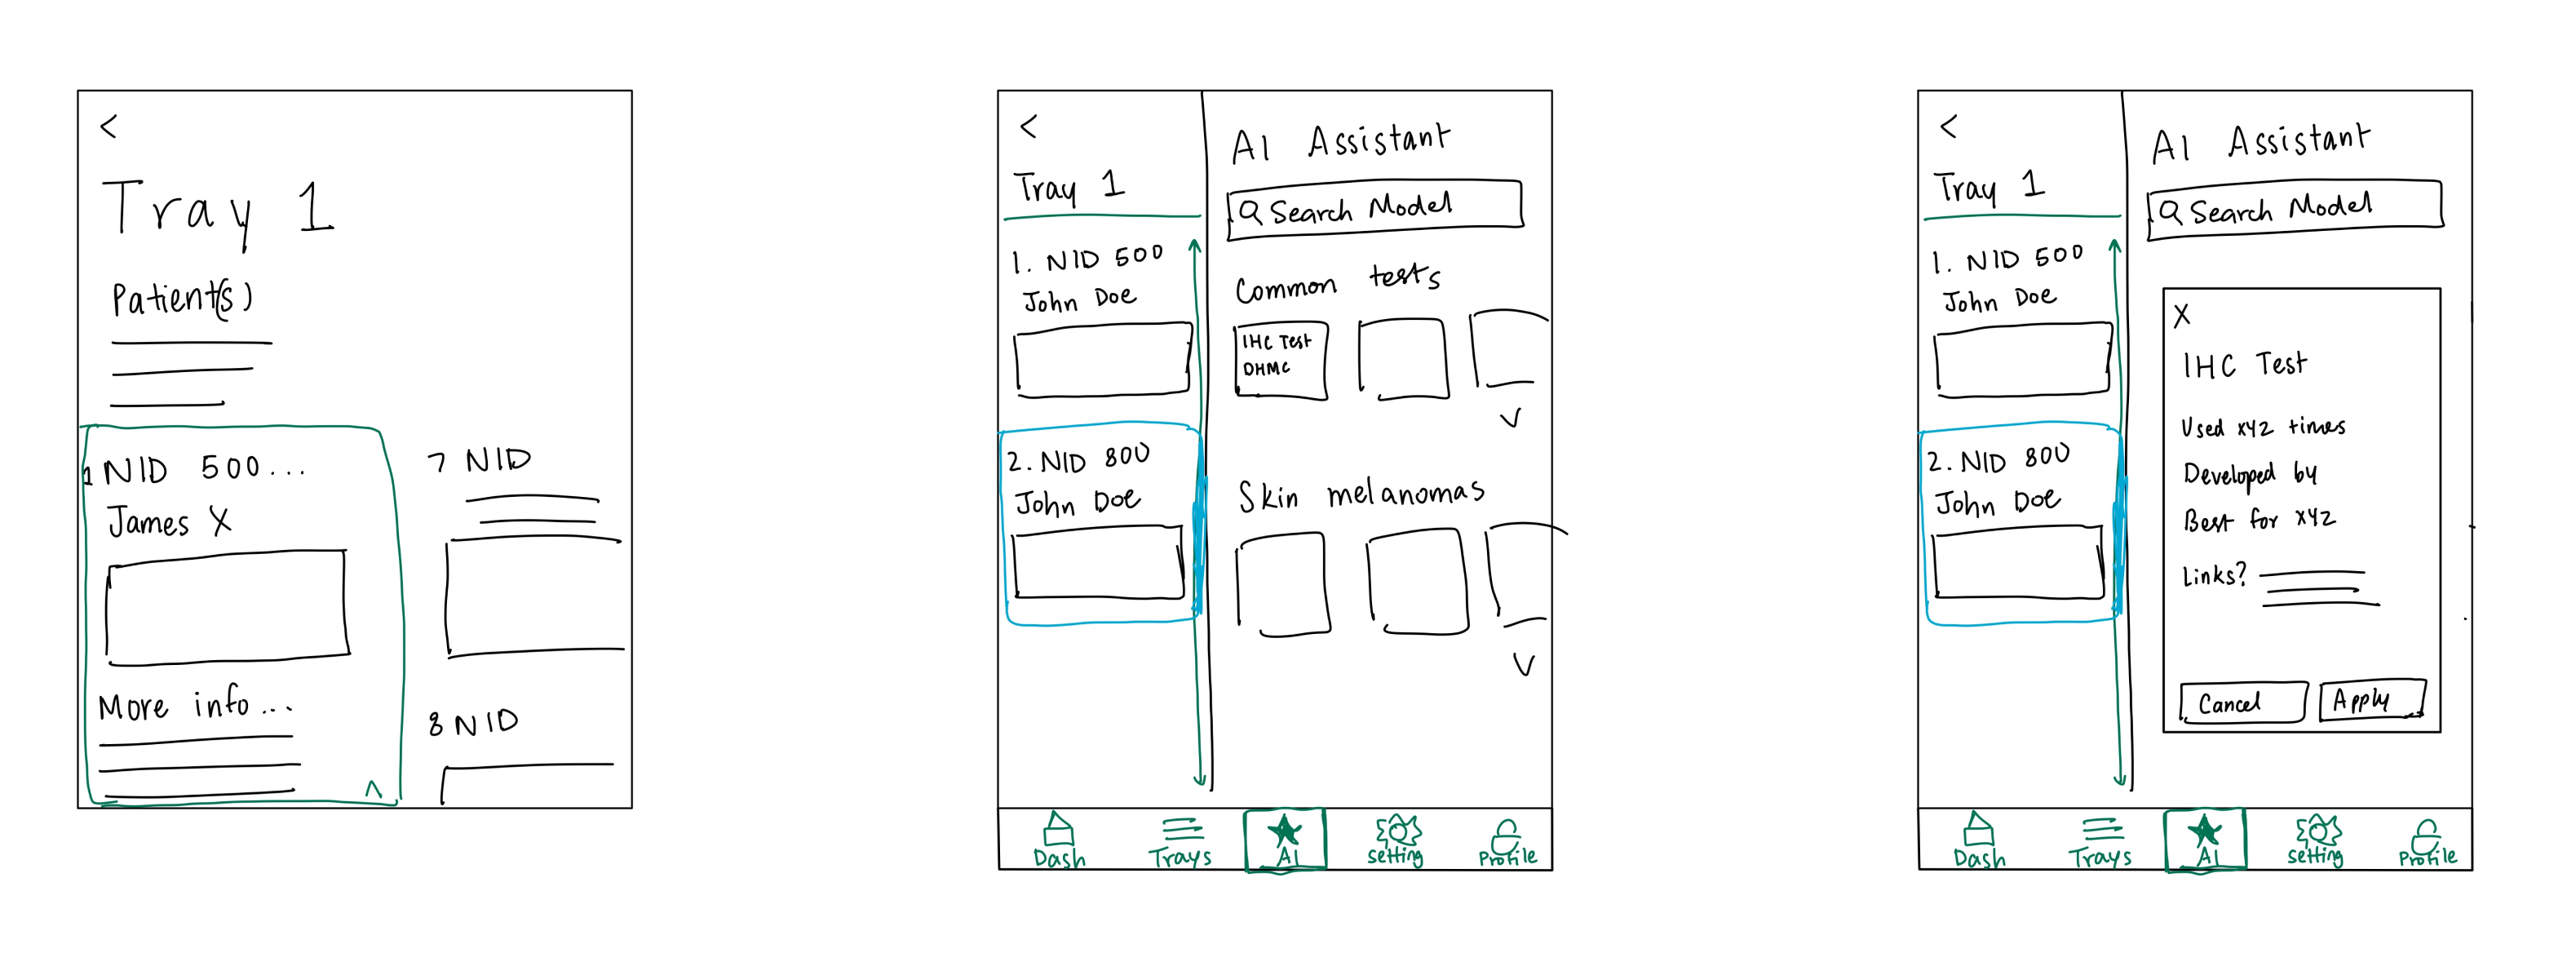 <
Tray 1
Patient(s)
1 NID 500...
James X
More info...
7 NID
8 NID
<
Tray 1
1. NID 500
John Doe
2. NID 800
John Doe
AI Assistant
Search Model
Common tests
IHC Test
DHMC
Skin melanomas
Dash
Trays
AI
Setting
Profile
<
Tray 1
1. NID 500
John Doe
2. NID 800
John Doe
AI Assistant
Search Model
X
IHC Test
Used xyz times
Developed by
Best for xyz
Links?
Cancel
Apply
Dash
Trays
AI
Setting
Profile